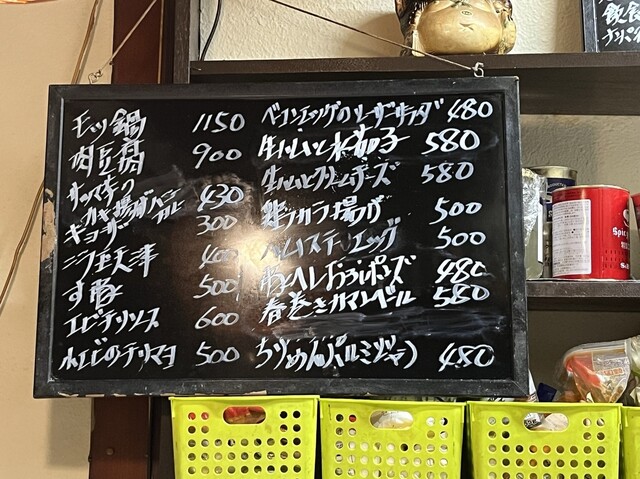 モツ鍋 1150
肉豆腐 900
サツマ芋の
かき揚げハニー 430
ギョーザ 300
ニラ玉天津 400
す豚 500
エビチリソース 600
小エビのチリマヨ 500
ベーコンエッグのシーザーサラダ 480
生ハムと水茄子 580
生ハムとクリームチーズ 580
鶏カラ揚げ 500
ハムステーキエッグ 500
豚ヘレおろしポンズ 480
春巻きカマンベール 580
ちりめんパルミジャーノ 480